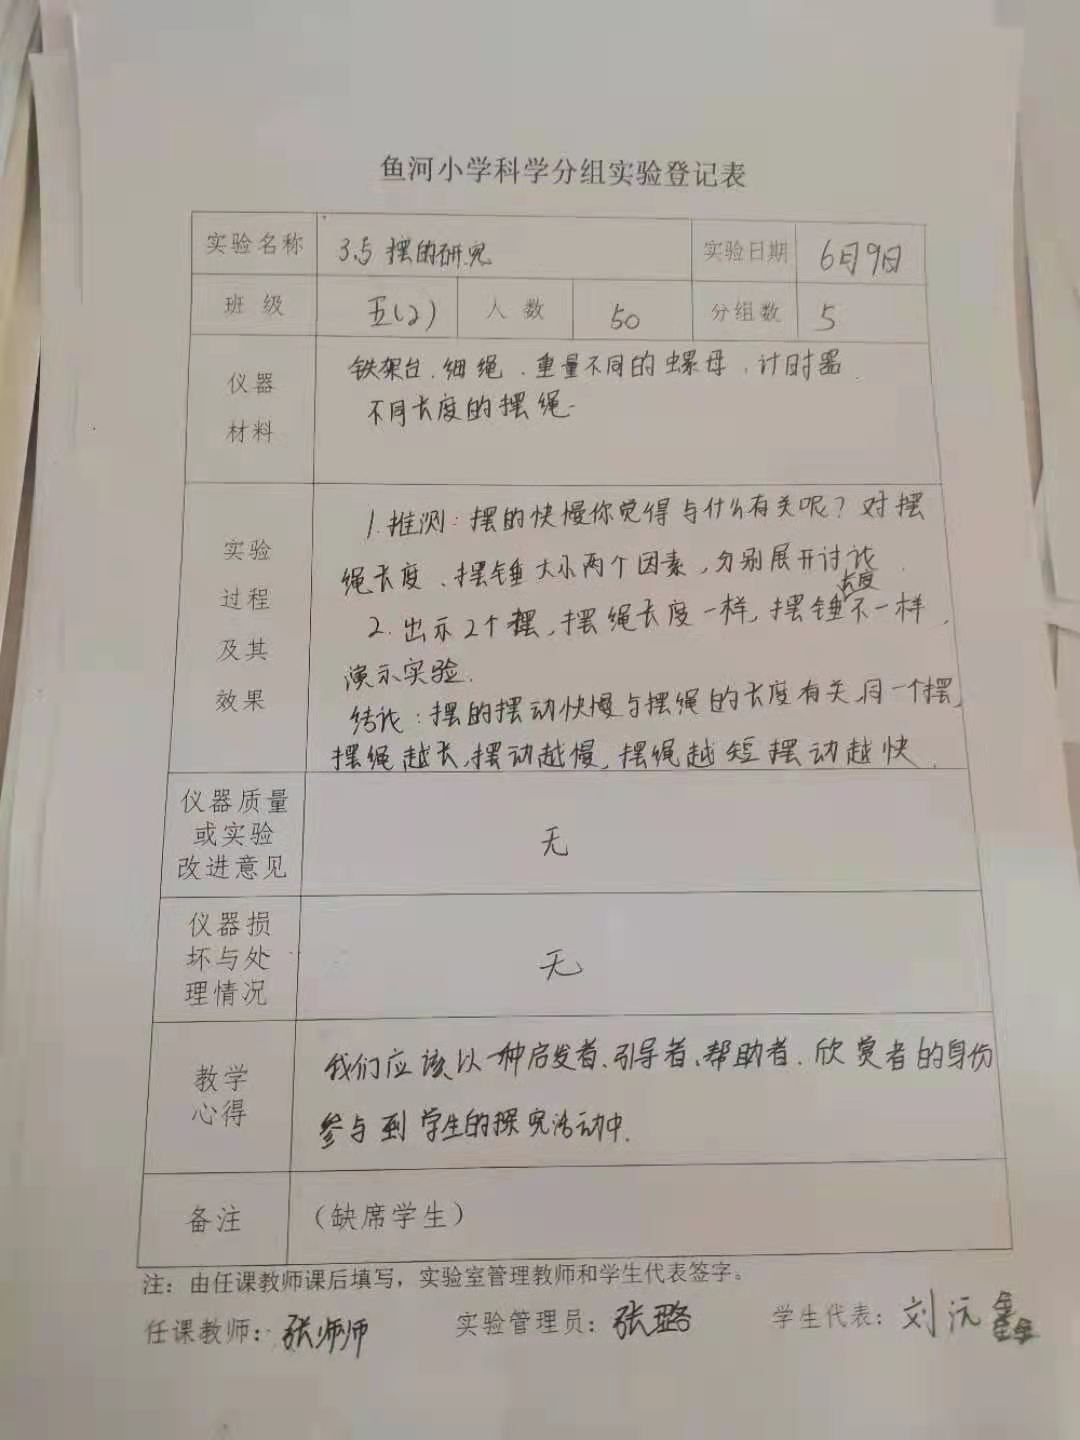 鱼河小学科学分组实验登记表
实验名称 3.5 摆的研究 实验日期 6月9日
班 级 五(2) 人 数 50 分组数 5
仪器
材料
铁架台、细绳、重量不同的螺母、计时器、
不同长度的摆绳.
实验
过程
及其
效果
1.推测:摆的快慢你觉得与什么有关呢?对摆
绳长度、摆锤大小两个因素,分别展开讨论.
2.出示2个摆,摆绳长度一样,摆锤长度不一样,
演示实验.
结论:摆的摆动快慢与摆绳的长度有关,同一个摆,
摆绳越长,摆动越慢,摆绳越短摆动越快.
仪器质量
或实验
改进意见
无
仪器损
坏与处
理情况
无
教学
心得
我们应该以一种启发者、引导者、帮助者、欣赏者的身份
参与到学生的探究活动中.
备注 (缺席学生)
注:由任课教师课后填写,实验室管理教师和学生代表签字。
任课教师:张师师 实验管理员:张璐 学生代表:刘沅鑫